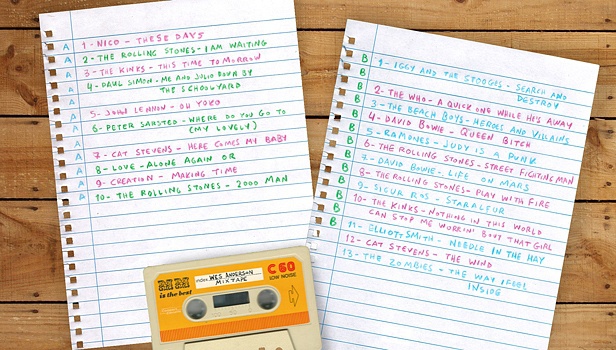 A 1- NICO - THESE DAYS
A 2- THE ROLLING STONES- I AM WAITING
A 3- THE KINKS- THIS TIME TOMORROW
A 4- PAUL SIMON- ME AND JULIO DOWN BY
THE SCHOOLYARD
A 5- JOHN LENNON- OH YOKO
A 6- PETER SARSTED- WHERE DO YOU GO TO
(MY LOVELY)
A 7- CAT STEVENS- HERE COMES MY BABY
A 8- LOVE- ALONE AGAIN OR
A 9- CREATION- MAKING TIME
A 10- THE ROLLING STONES- 2000 MAN
B 1- IGGY AND THE STOOGES- SEARCH AND
DESTROY
B 2- THE WHO- A QUICK ONE WHILE HE'S AWAY
B 3- THE BEACH BOYS- HEROES AND VILLAINS
B 4- DAVID BOWIE- QUEEN BITCH
B 5- RAMONES- JUDY IS A PUNK
B 6- THE ROLLING STONES- STREET FIGHTING MAN
B 7- DAVID BOWIE- LIFE ON MARS
B 8- THE ROLLING STONES- PLAY WITH FIRE
B 9- SIGUR ROS- STARALFUR
B 10- THE KINKS- NOTHING IN THIS WORLD
CAN STOP ME WORRIN' BOUT THAT GIRL
B 11- ELLIOTT SMITH- NEEDLE IN THE HAY
12- CAT STEVENS- THE WIND
13- THE ZOMBIES- THE WAY I FEEL
INSIDE
is the best
WES ANDERSON
MIXTAPE
C60
LOW NOISE